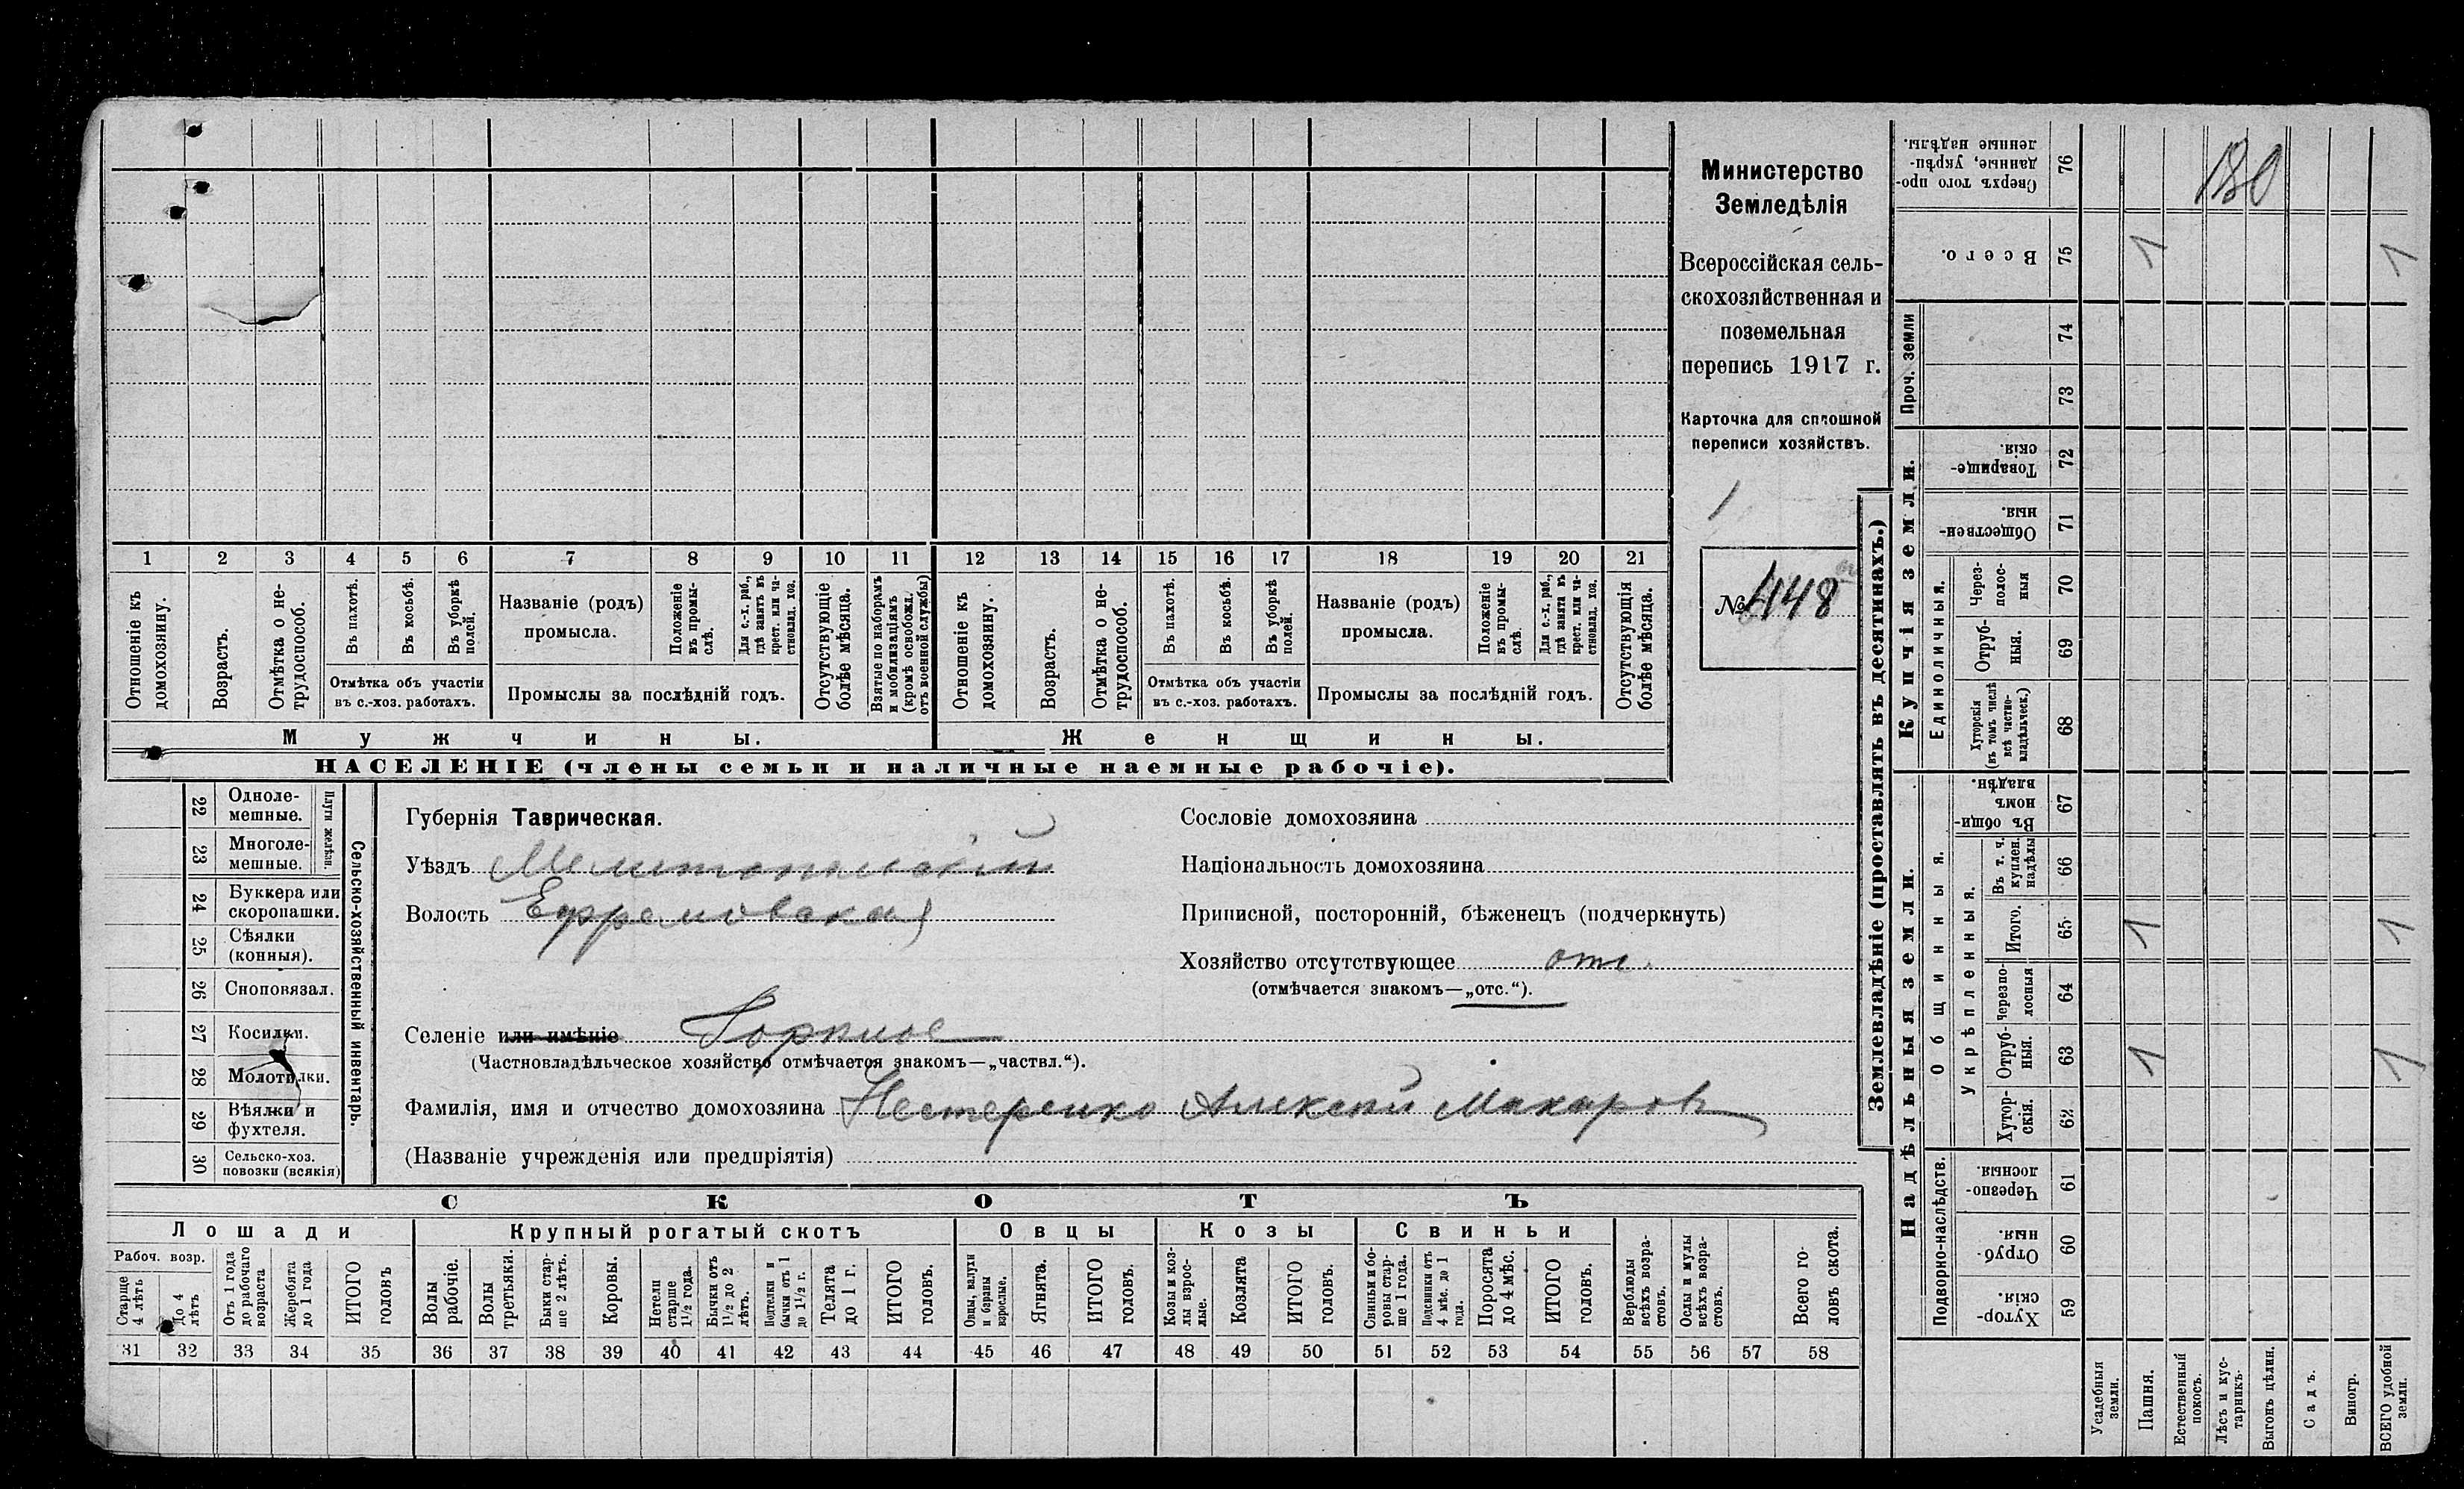 Министерство
Земледѣлія
Всероссійская сель-
скохозяйственная и
поземельная
перепись 1917 г.
Карточка для сплошной
переписи хозяйствъ.
1
№ 448
1 2 3 4 5 6 7 8 9 10 11 12 13 14 15 16 17 18 19 20 21
Отношеніе къ домохозяину.
Возрастъ.
Отмѣтка о не-трудоспособ.
Въ пахотѣ.
Въ косьбѣ.
Въ уборкѣ полей.
Отмѣтка объ участіи
въ с.-хоз. работахъ.
Названіе (родъ)
промысла.
Положеніе въ промы-слѣ.
Для с.-х. раб., гдѣ занятъ въ крест. или ча-стновлад. хоз.
Промыслы за послѣдній годъ.
Отсутствующіе болѣе мѣсяца.
Взятые по наборамъ и мобилизаціямъ (кромѣ освобожд. отъ военной службы)
Отношеніе къ домохозяину.
Возрастъ.
Отмѣтка о не-трудоспособ.
Въ пахотѣ.
Въ косьбѣ.
Въ уборкѣ полей.
Отмѣтка объ участіи
въ с.-хоз. работахъ.
Названіе (родъ)
промысла.
Положеніе въ промы-слѣ.
Для с.-х. раб., гдѣ занята въ крест. или ча-стновлад. хоз.
Промыслы за послѣдній годъ.
Отсутствующія болѣе мѣсяца.
Мужчины.
Женщины.
НАСЕЛЕНІЕ (члены семьи и наличные наемные рабочіе).
Сельско-хозяйственный инвентарь.
Плуги желѣзн.
22 Одноле-мешные.
23 Многоле-мешные.
24 Буккера или скоропашки.
25 Сѣялки (конныя).
26 Сноповязал.
27 Косилки.
28 Молотилки.
29 Вѣялки и фухтеля.
30 Сельско-хоз. повозки (всякія)
Губернія Таврическая.
Уѣздъ Мелитопольскій
Волость Ефремовская
Селеніе или имѣніе Горкное
(Частновладѣльческое хозяйство отмѣчается знакомъ—„частвл.“).
Фамилія, имя и отчество домохозяина Нестеренко Алексѣй Макаровъ
(Названіе учрежденія или предпріятія)
Сословіе домохозяина
Національность домохозяина
Приписной, посторонній, бѣженецъ (подчеркнуть)
Хозяйство отсутствующее отс.
(отмѣчается знакомъ—„отс.“).
СКОТЪ
Лошади
Крупный рогатый скотъ
Овцы
Козы
Свиньи
Рабоч. возр.
Старше 4 лѣтъ
До 4 лѣтъ
Отъ 1 года до рабочаго возраста
Жеребята до 1 года
ИТОГО головъ
Волы рабочіе.
Волы третьяки.
Быки стар-ше 2 лѣтъ.
Коровы.
Нетели старше 1½ года.
Бычки отъ 1½ до 2 лѣтъ.
Подтелки и бычки отъ 1 до 1½ г.
Телята до 1 г.
ИТОГО головъ.
Овцы, валухи и бараны взрослые.
Ягнята.
ИТОГО головъ.
Козы и коз-лы взрос-лые.
Козлята
ИТОГО головъ.
Свиньи и бо-ровы стар-ше 1 года.
Подсвинки отъ 4 мѣс. до 1 года.
Поросята до 4 мѣс.
ИТОГО головъ.
Верблюды всѣхъ возра-стовъ.
Ослы и мулы всѣхъ возра-стовъ.
Всего го-ловъ скота.
31 32 33 34 35 36 37 38 39 40 41 42 43 44 45 46 47 48 49 50 51 52 53 54 55 56 57 58
Землевладѣніе (проставлять въ десятинахъ.)
Надѣльныя земли.
Купчія земли.
Проч. земли
Подворно-наслѣдств.
Общинныя.
Укрѣпленныя.
Единоличныя.
Сверхъ того про-данные, укрѣп-ленные надѣлы. 76 180
Всего. 75 1 1
74
73
Товарище-скія. 72
Обществен-ныя. 71
Через-полос-ныя 70
Отруб-ныя. 69
Хуторскія (въ томъ числѣ всѣ частно-владѣльческ.) 68
Въ общи-номъ владѣн. 67
Въ т. ч. куплен. надѣлы 66
Итого. 65 1 1
Черезпо-лосныя 64
Отруб-ныя. 63 1 1
Хутор-скія. 62
Черезпо-лосныя. 61
Отруб-ныя. 60
Хутор-скія. 59
Усадебныя земли.
Пашня.
Естественный покосъ.
Лѣсъ и кус-тарникъ.
Выгонъ цѣлин.
Садъ.
Виногр.
ВСЕГО удобной земли.